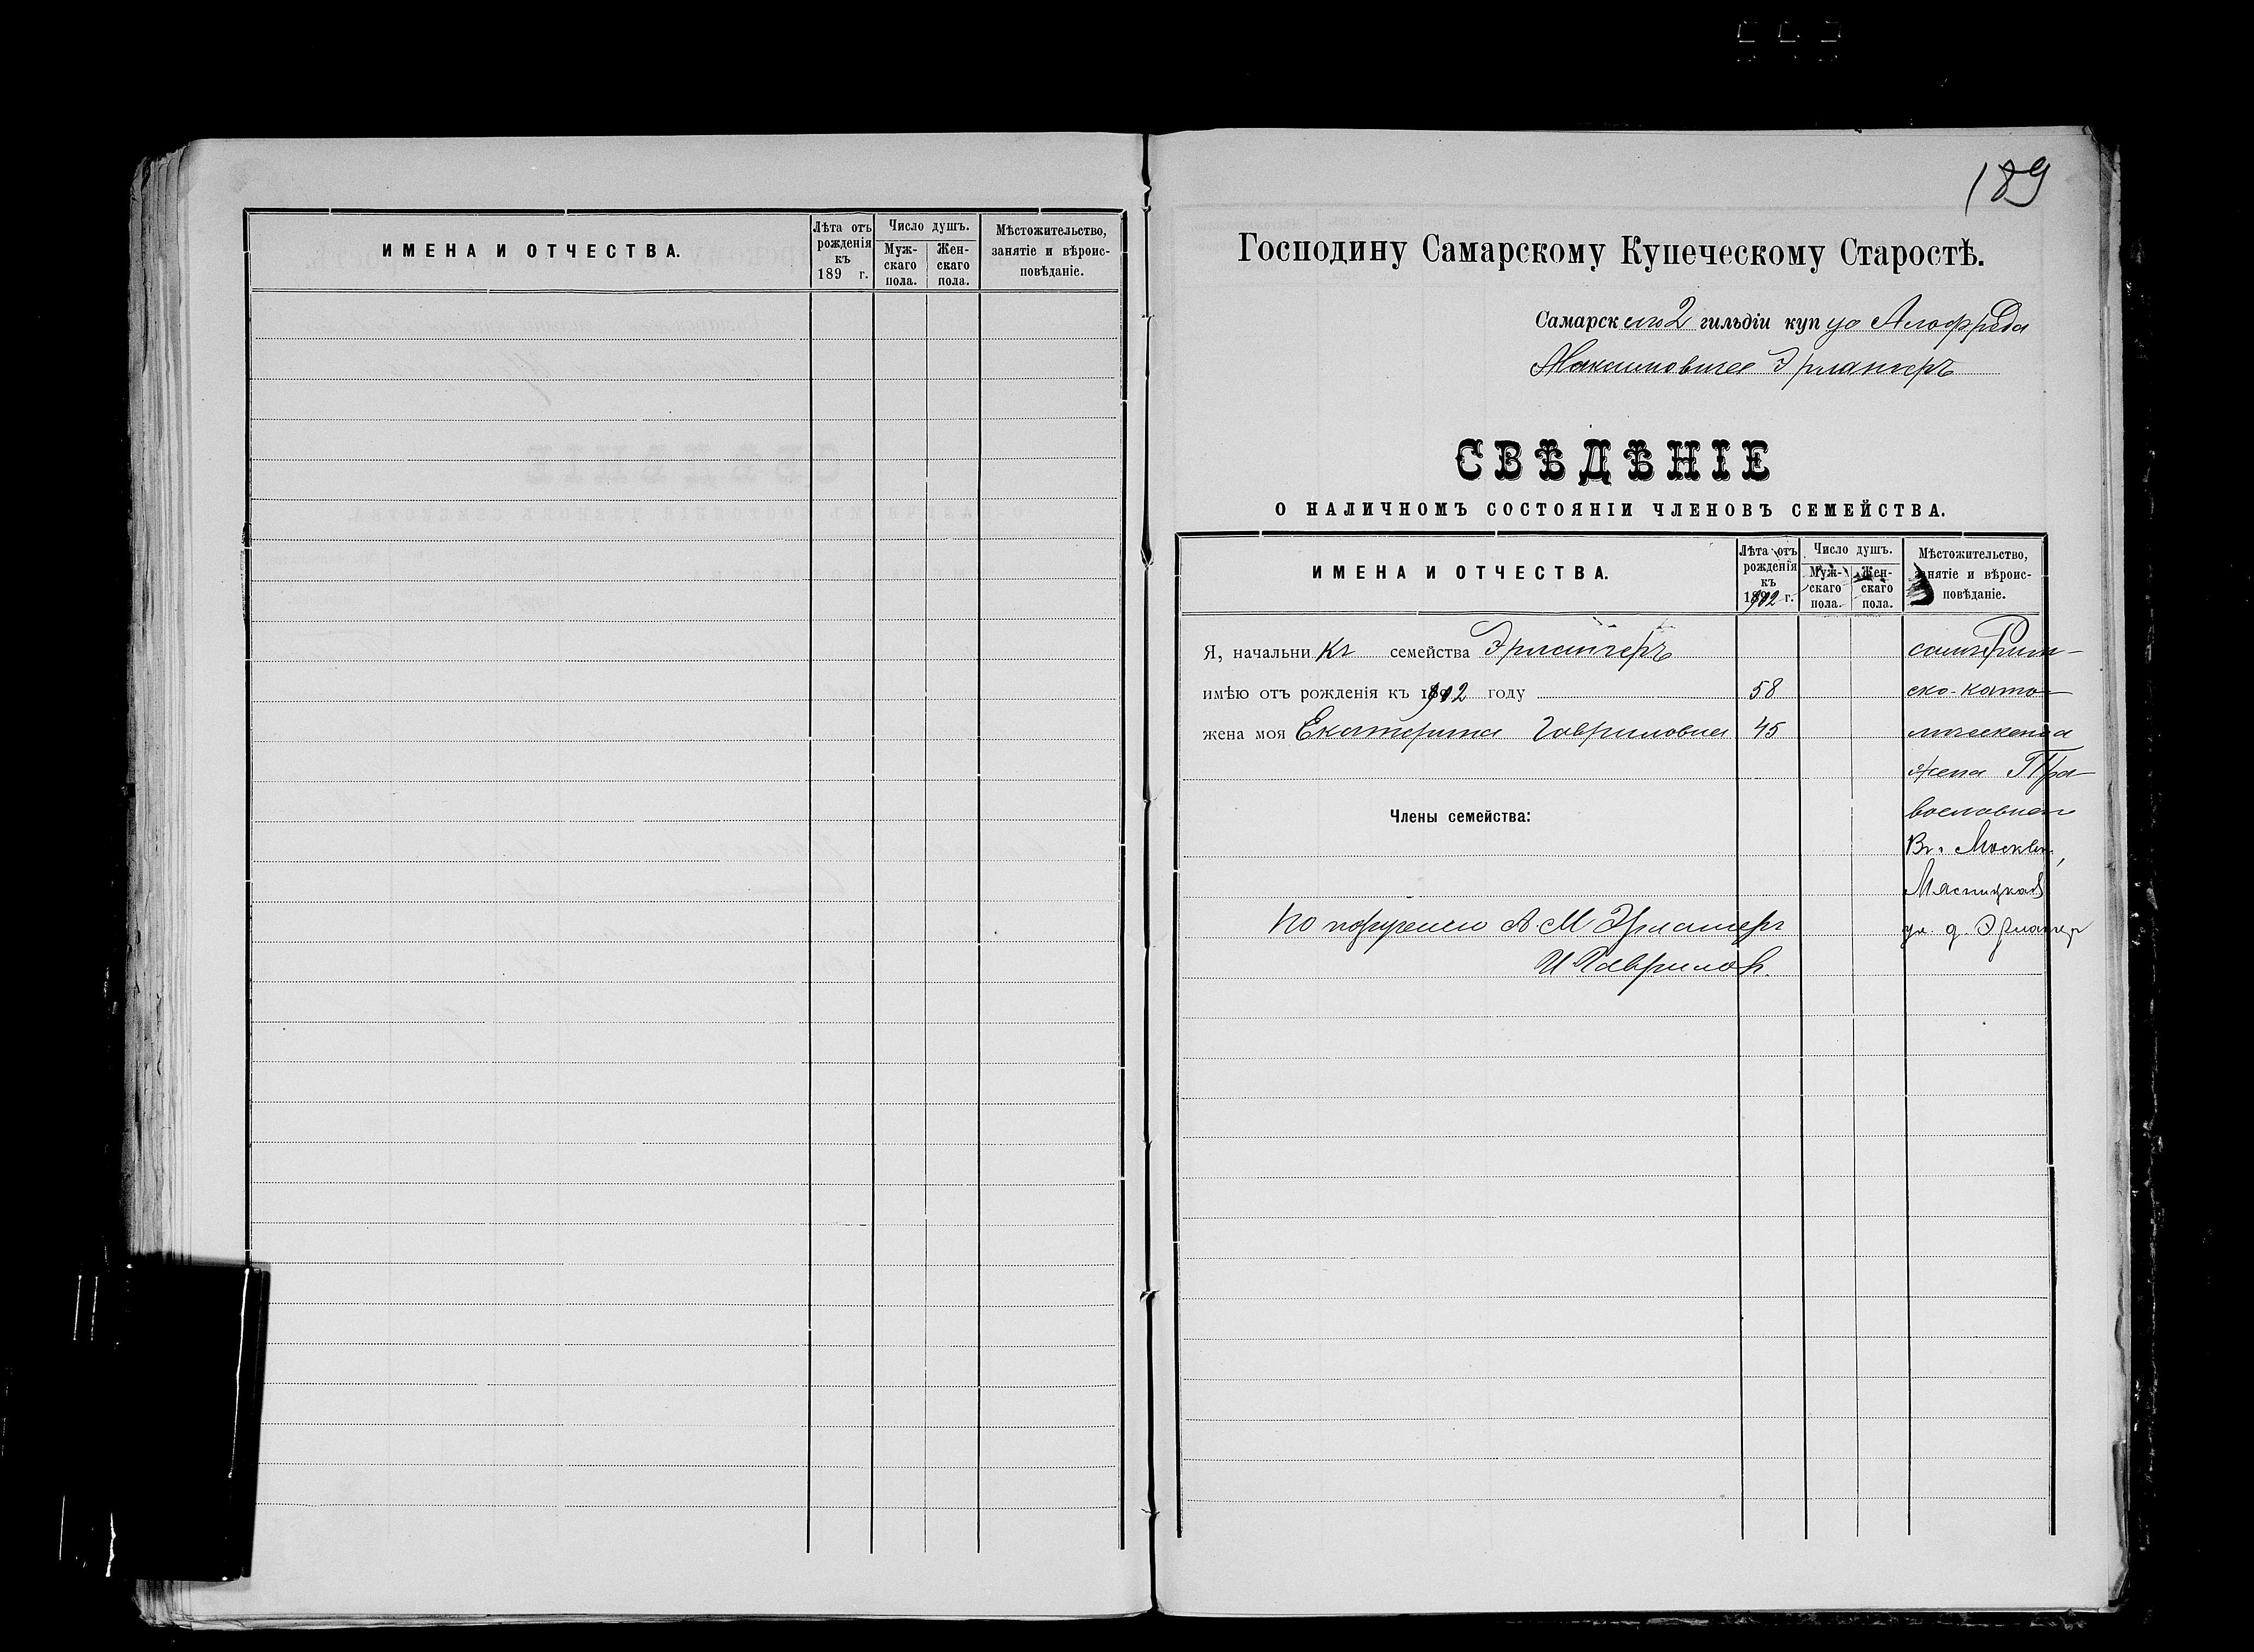 ИМЕНА И ОТЧЕСТВА.
Лѣта отъ рожденія къ 189 г.
Число душъ.
Мужскаго пола.
Женскаго пола.
Мѣстожительство, занятіе и вѣроисповѣданіе.
189
Господину Самарскому Купеческому Старостѣ.
Самарскаго 2 гильдіи купца Альфреда
Максимовича Эрлангеръ
СВѢДѢНІЕ
О НАЛИЧНОМЪ СОСТОЯНІИ ЧЛЕНОВЪ СЕМЕЙСТВА.
ИМЕНА И ОТЧЕСТВА.
Лѣта отъ
рожденія
къ
1902 г.
Число душъ.
Муж-
скаго
пола.
Жен-
скаго
пола.
Мѣстожительство,
занятіе и вѣроис-
повѣданіе.
Я, начальникъ семейства Эрлангеръ самъ Рим-
имѣю отъ рожденія къ 1902 году 58 ско-като-
жена моя Екатерина Гавриловна 45
жена Пра-
Члены семейства: вославная
Въ г. Москвѣ,
Мясницкая
По порученію А. М. Эрлангеръ ул. д. Эрлангер
И Гаврилов.